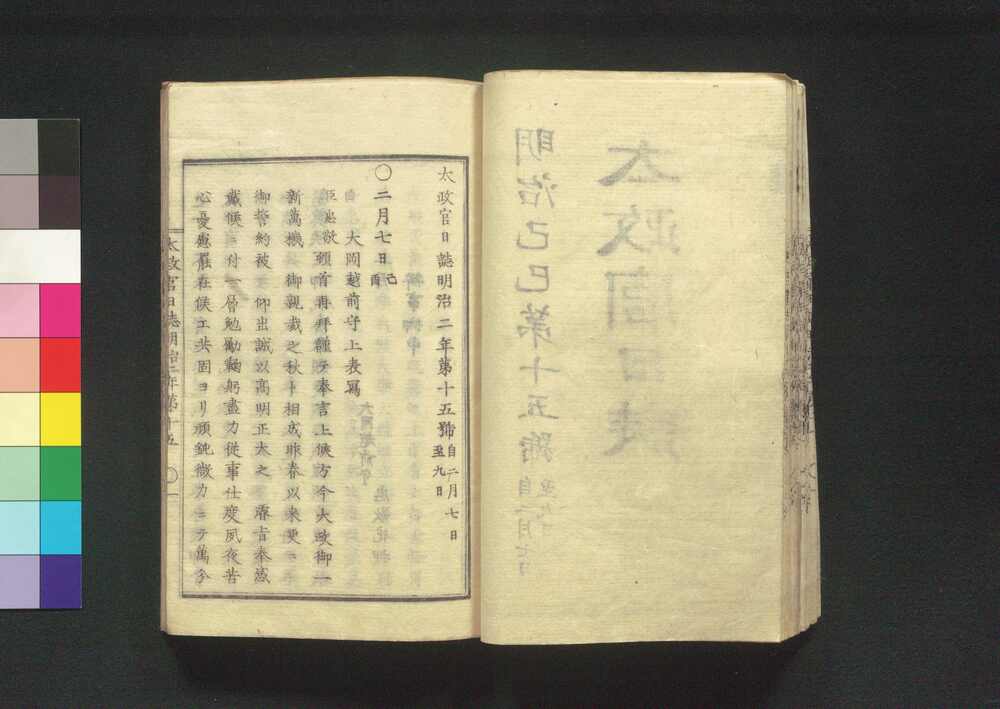 太政官日誌明治二年第十五號 自二月七日 至九日
〇二月七日 己酉
大岡越前守上表寫
臣忠敬頓首再拜謹テ奉言上候方今大政御一
新萬機 御親裁之秋ト相成昨春以来更ニ
御誓約被 仰出誠以高明正大之 睿旨奉感
戴候ニ付一層勉勵鞠躬盡力従事仕度夙夜苦
心憂慮罷在候エ共固ヨリ頑鈍微力ニテ萬分
太政官日誌明治二年第十五 〇一
太政官日誌
明治己巳第十五號 自二月七日 至九日